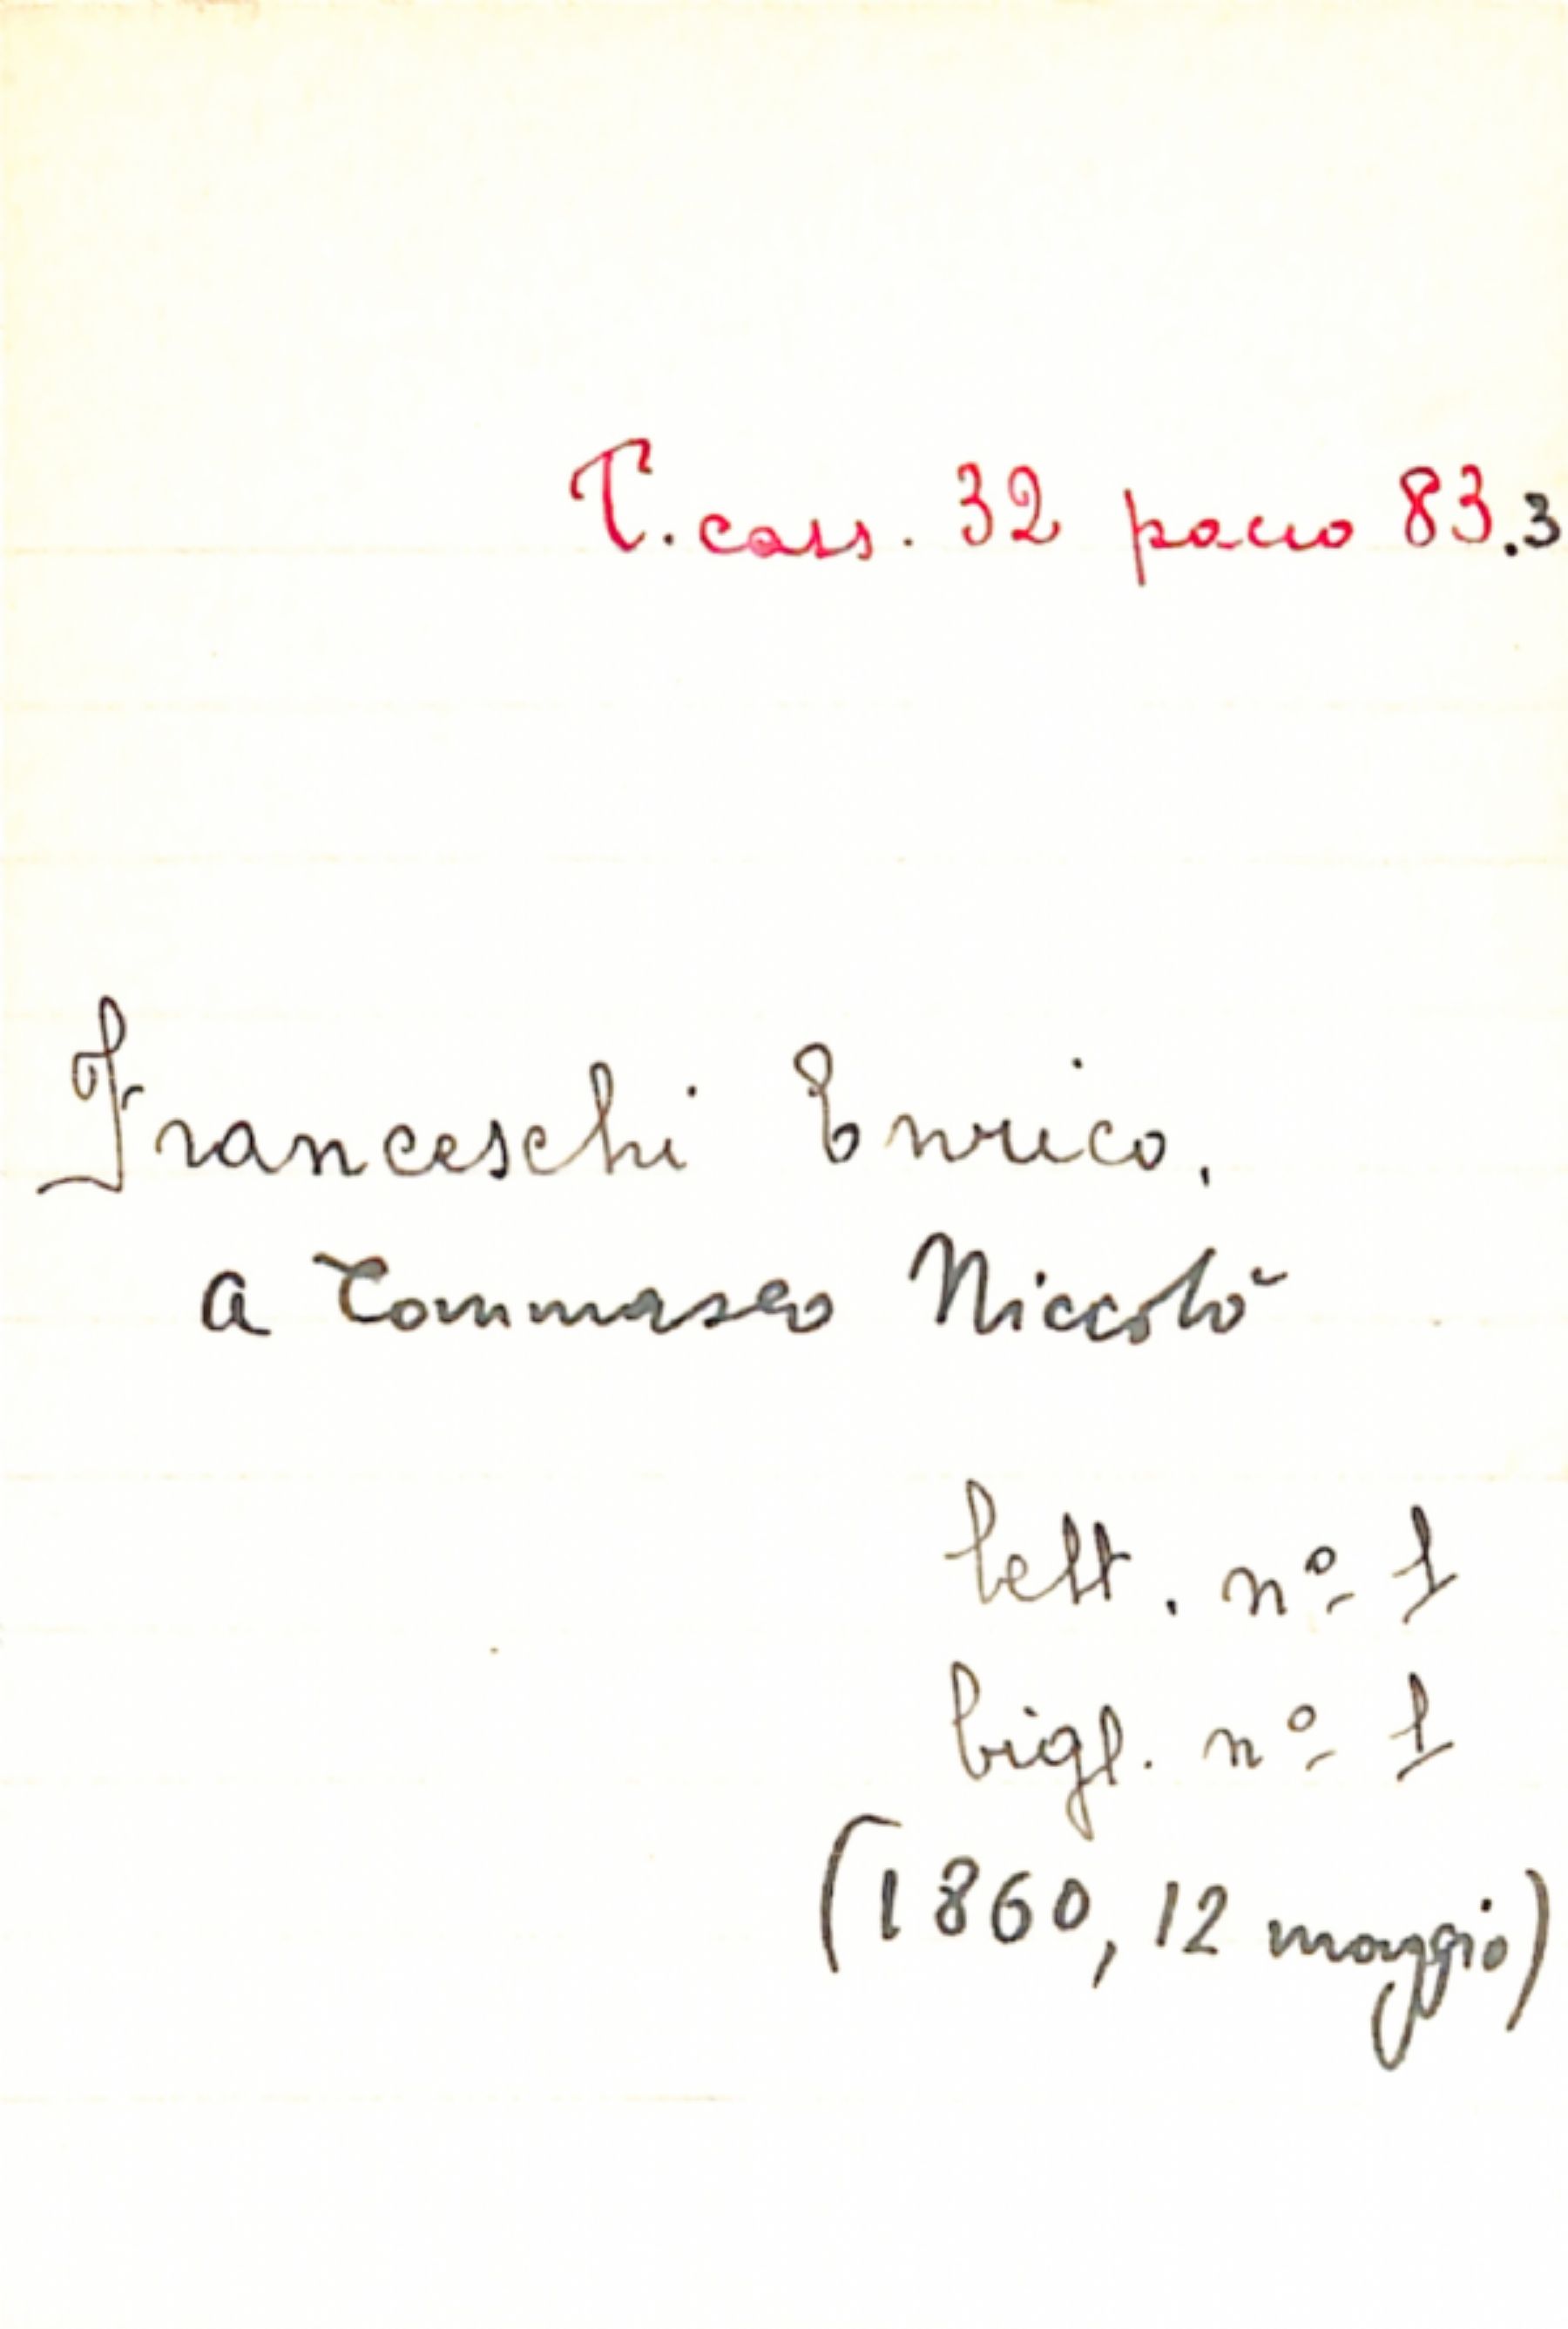 T. cass. 32 pacco 83.3
Franceschi Enrico,
a Tommaseo Niccolò
lett. nº 1
bigl. nº 1
(1860, 12 maggio)